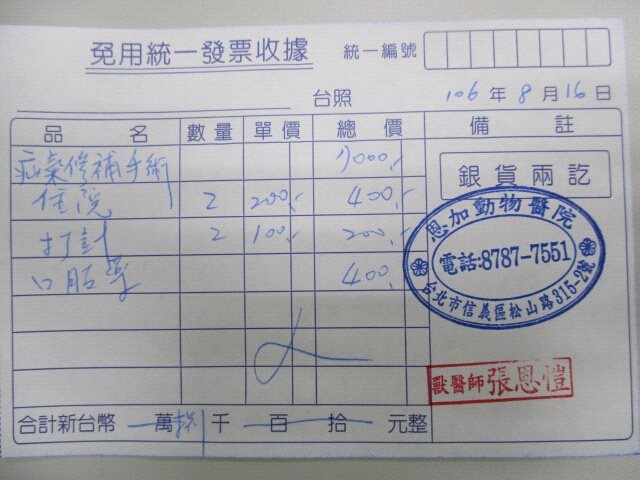 免用統一發票收據 統一編號
台照 106年8月16日
品名 數量 單價 總價 備註
疝氣修補手術 7000,-
住院 2 200,- 400,-
打針 2 100,- 200,-
口腔 400,-
銀貨兩訖
恩加動物醫院
電話:8787-7551
台北市信義區松山路315-2號
獸醫師張恩愷
合計新台幣 萬捌千 百 拾 元整